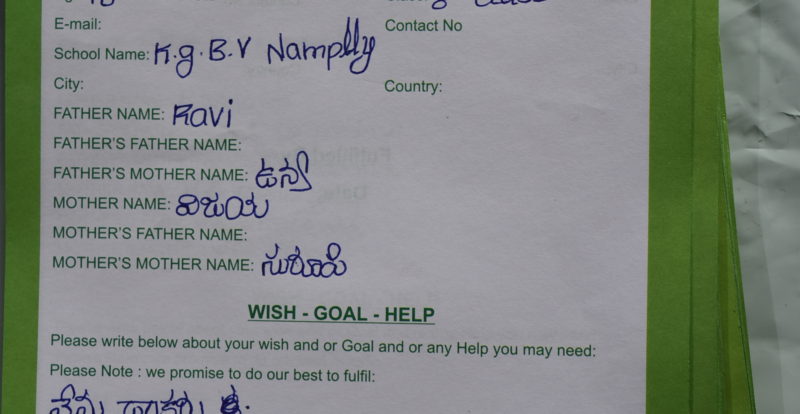 E-mail: Contact No
School Name: K.g.B.V Namplly
City: Country:
FATHER NAME: Ravi
FATHER'S FATHER NAME:
FATHER'S MOTHER NAME:
MOTHER NAME: విజయ
MOTHER'S FATHER NAME:
MOTHER'S MOTHER NAME:
WISH - GOAL - HELP
Please write below about your wish and or Goal and or any Help you may need:
Please Note : we promise to do our best to fulfil:
నేను